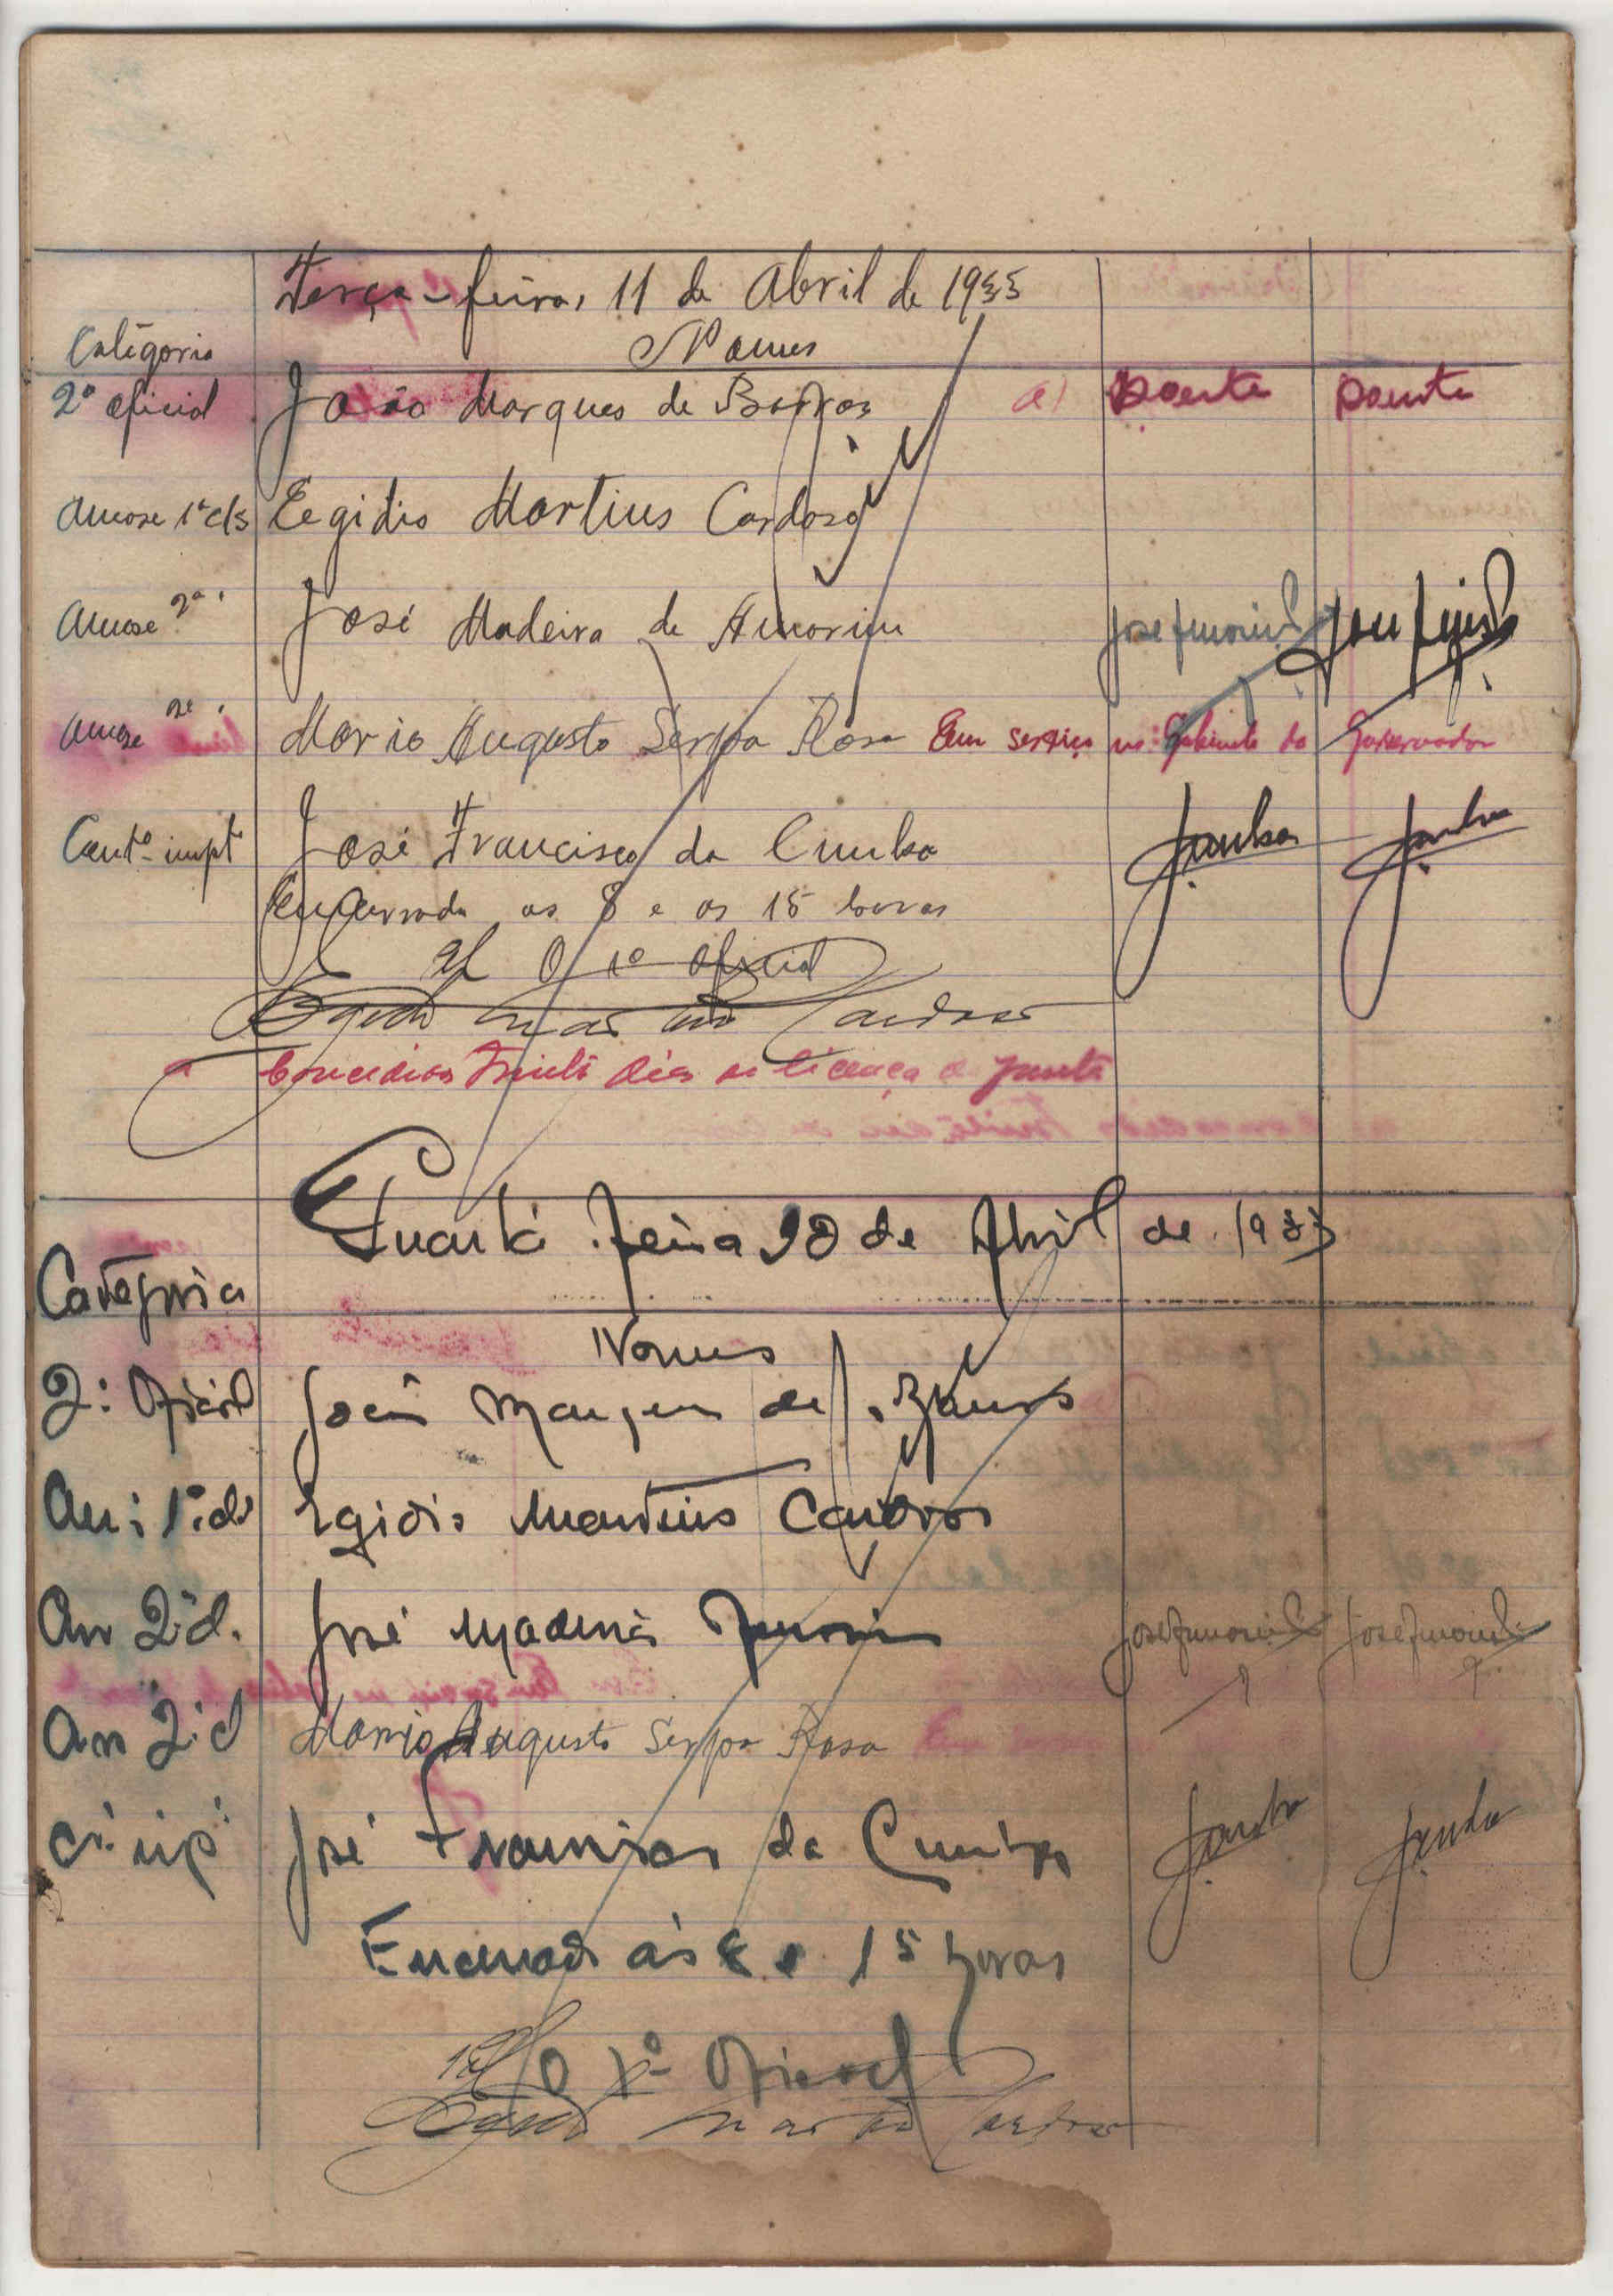 Terça-feira, 11 de Abril de 1933
Catêgoria Nomes
2º oficial João Marques de Barros a) Doente Doente
1ª cls Egidio Martins Cardoso
2ª José Madeira de Amorim José Amorim
2ª Mario Augusto Serpa Rosa Em serviço no Gabinete do Governador
Contº impt José Francisco da Cunha JCunha JCunha
Encerrado as 8 e as 15 horas
O 1º oficial
Egidio Martins Cardoso
a Concedidos trinta dias de licença a Junta
Quarta feira de Abril de 1933
Categoria
Nomes
2º Oficial João Marques de Barros
1ª cl Egidio Martins Cardoso
2ª cl. José Madeira Amorim José Amorim José Amorim
2ª cl Mario Augusto Serpa Rosa
José Francisco da Cunha JCunha JCunha
Encerrado ás 8 e 15 horas
O 1º Oficial
Egidio Martins Cardoso